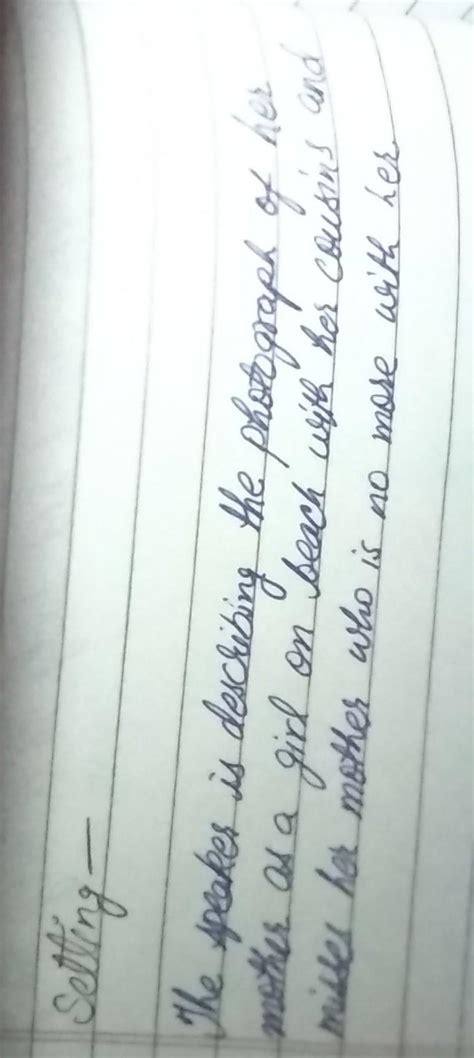 Setting —
The speaker is describing the photograph of her
mother as a girl on beach with her cousins and
misses her mother who is no more with her